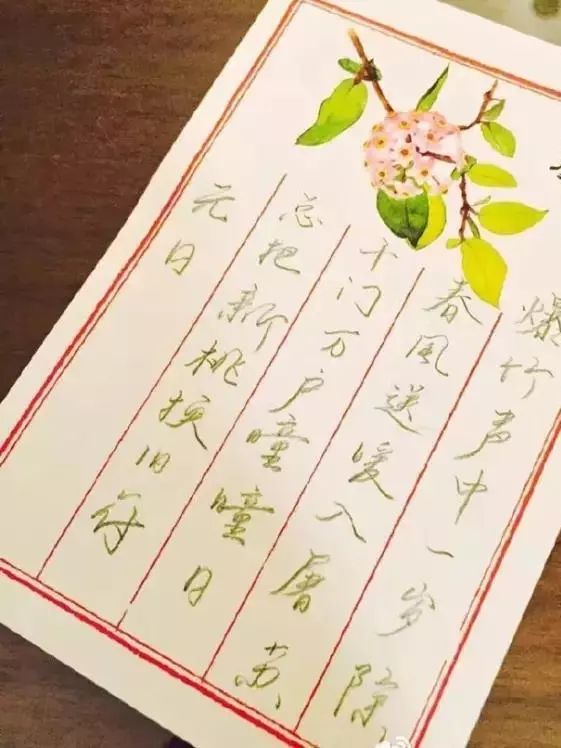 爆竹声中一岁除，
春风送暖入屠苏、
千门万户曈曈日
总把新桃换旧符
元日